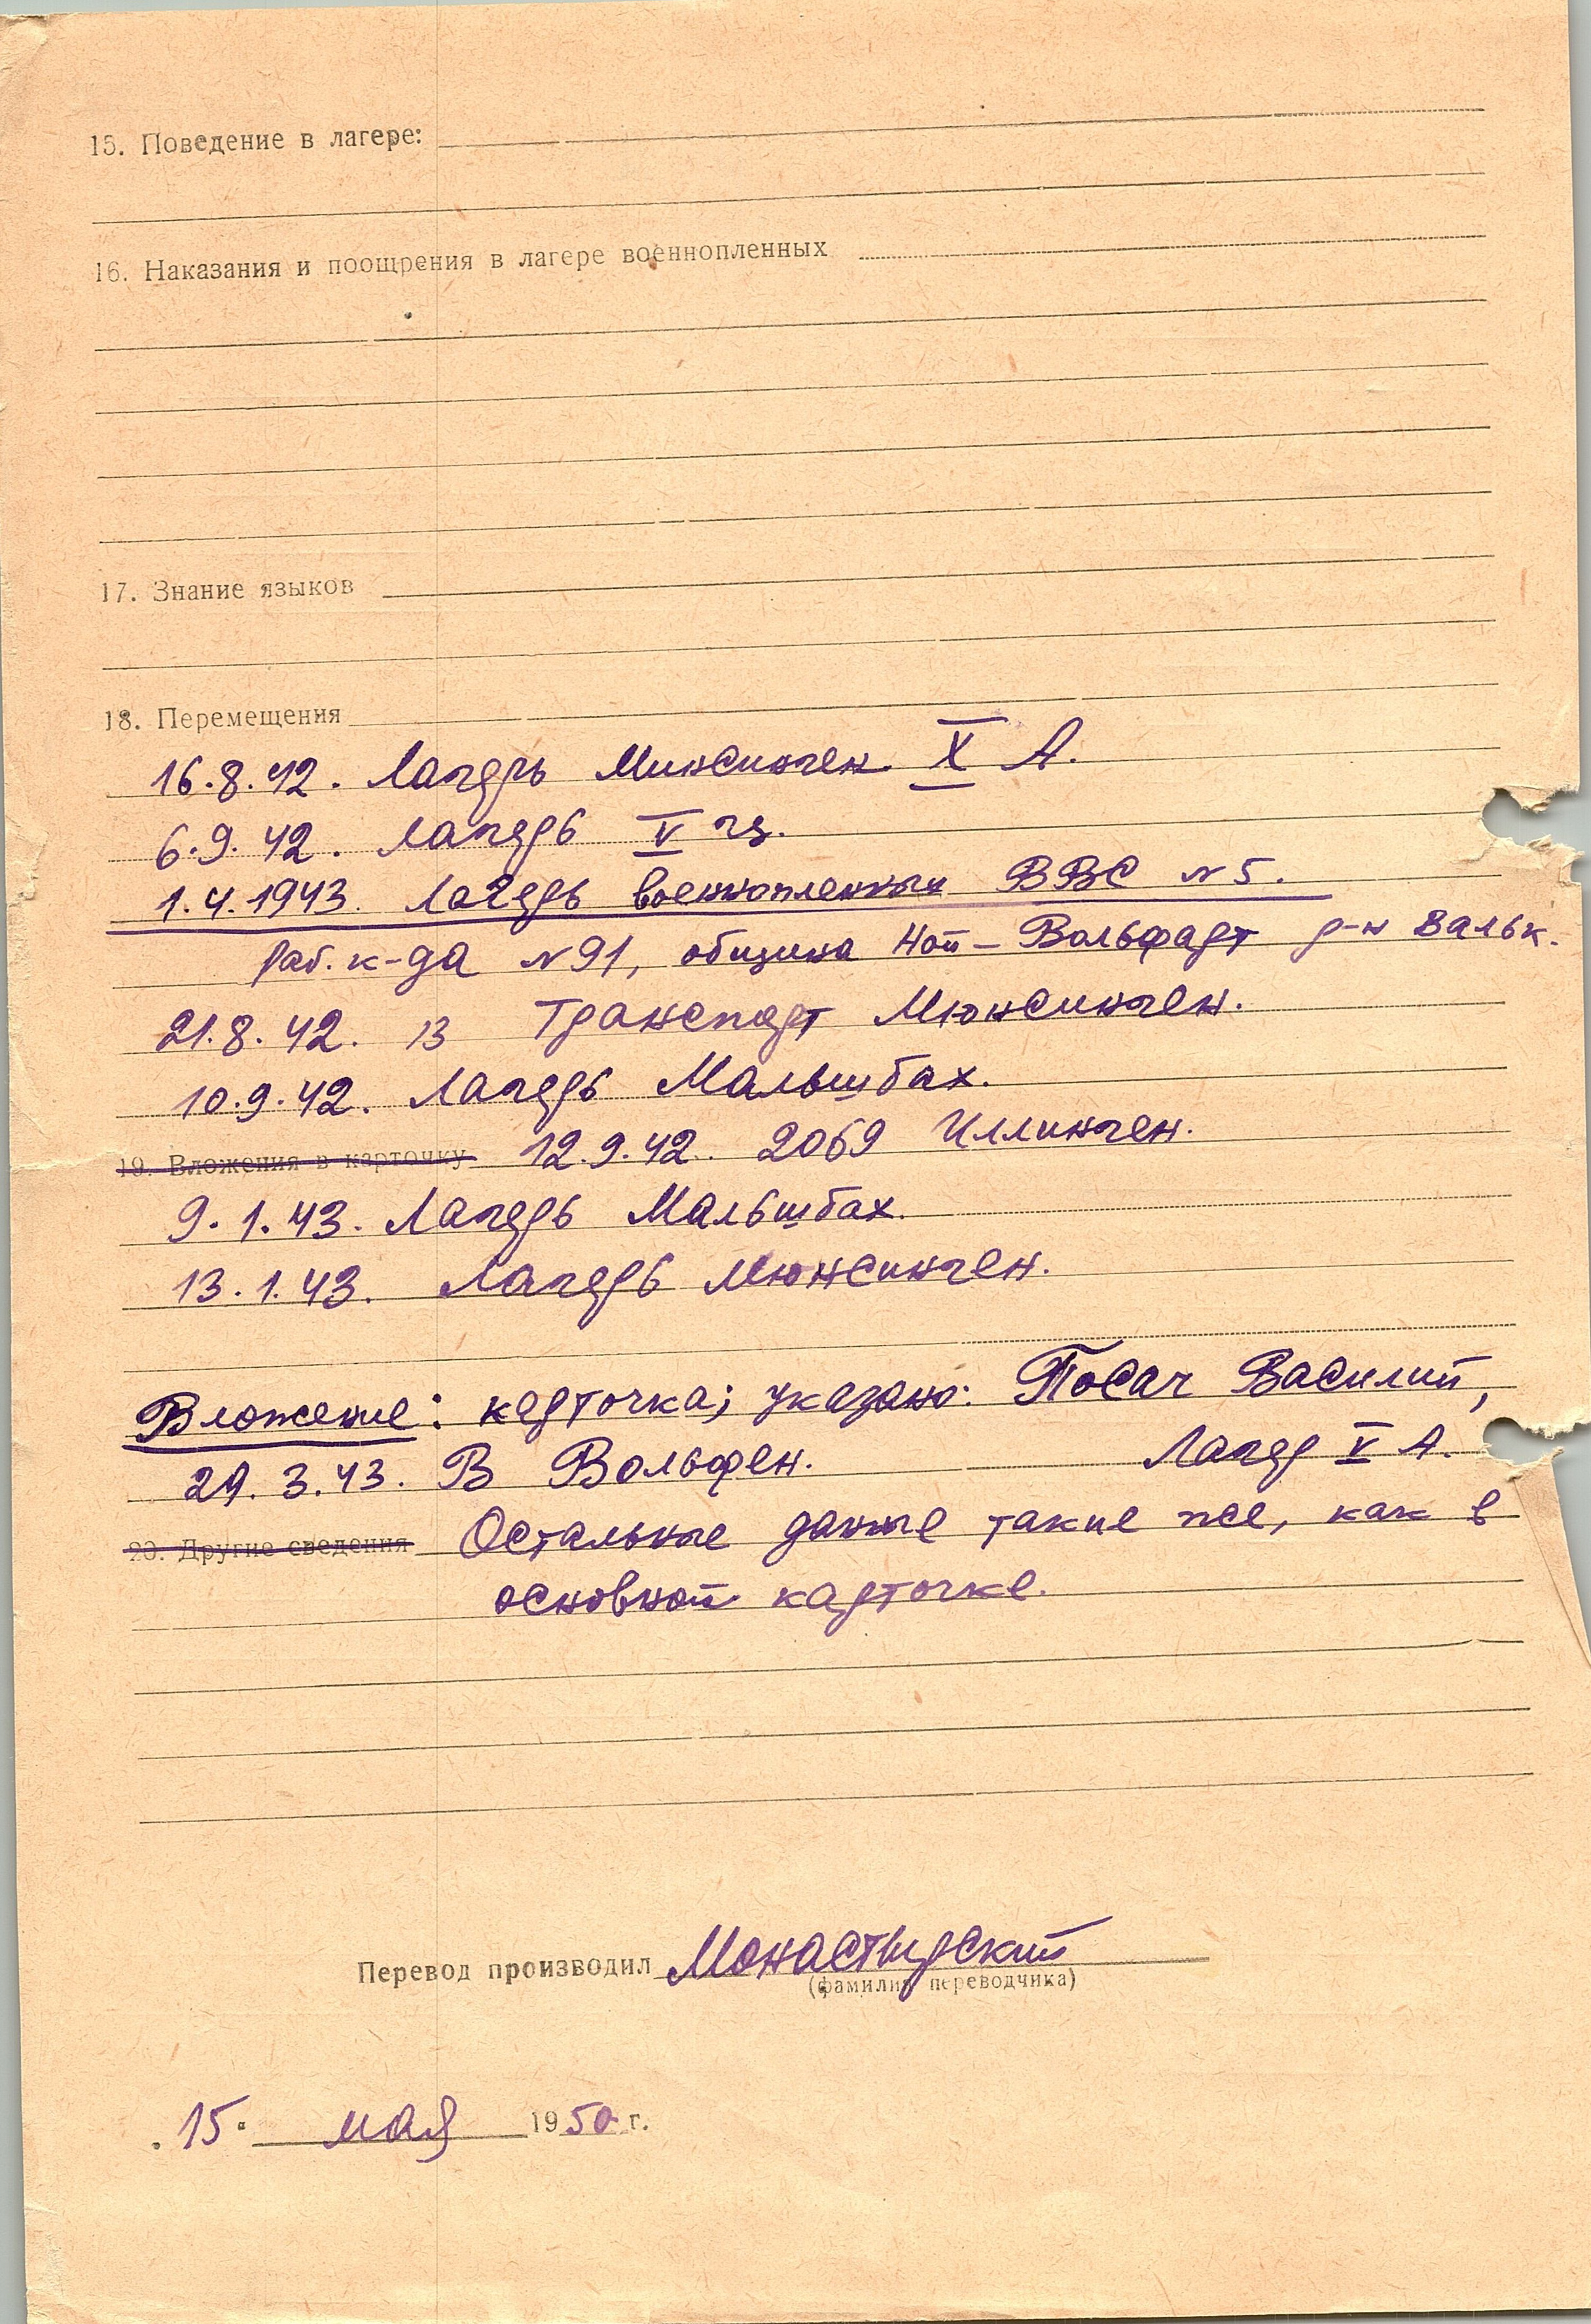 15. Поведение в лагере:
16. Наказания и поощрения в лагере военнопленных
17. Знание языков
18. Перемещения
16.8.42. Лагерь Минсинген X А.
6.9.42. Лагерь V
1.4.1943. Лагерь военнопленных ВВС N 5.
Раб. к-да N 91, община Ной-Вольфарт р-н Вальк.
21.8.42. 13 Транспорт Мюнсинген.
10.9.42. Лагерь Мальшбах.
19. Вложения в карточку 12.9.42. 2069 Иллинген.
9.1.43. Лагерь Мальшбах.
13.1.43. Лагерь Мюнсинген.
Вложение: карточка; указано: Посач Василий,
29.3.43. В Вольфен. Лагер V А.
20. Другие сведения Остальные данные такие же, как в
основной карточке.
Перевод производил Монастырский
(фамилия переводчика)
15. мая 1950 г.